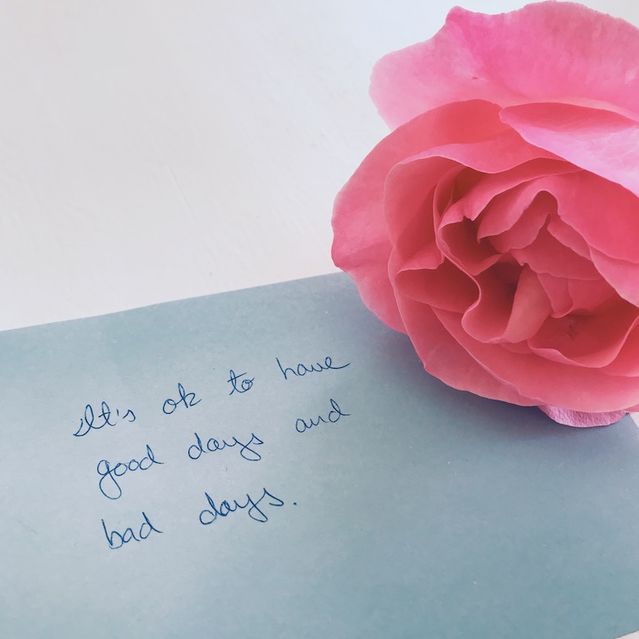 It's ok to have
good days and
bad days.